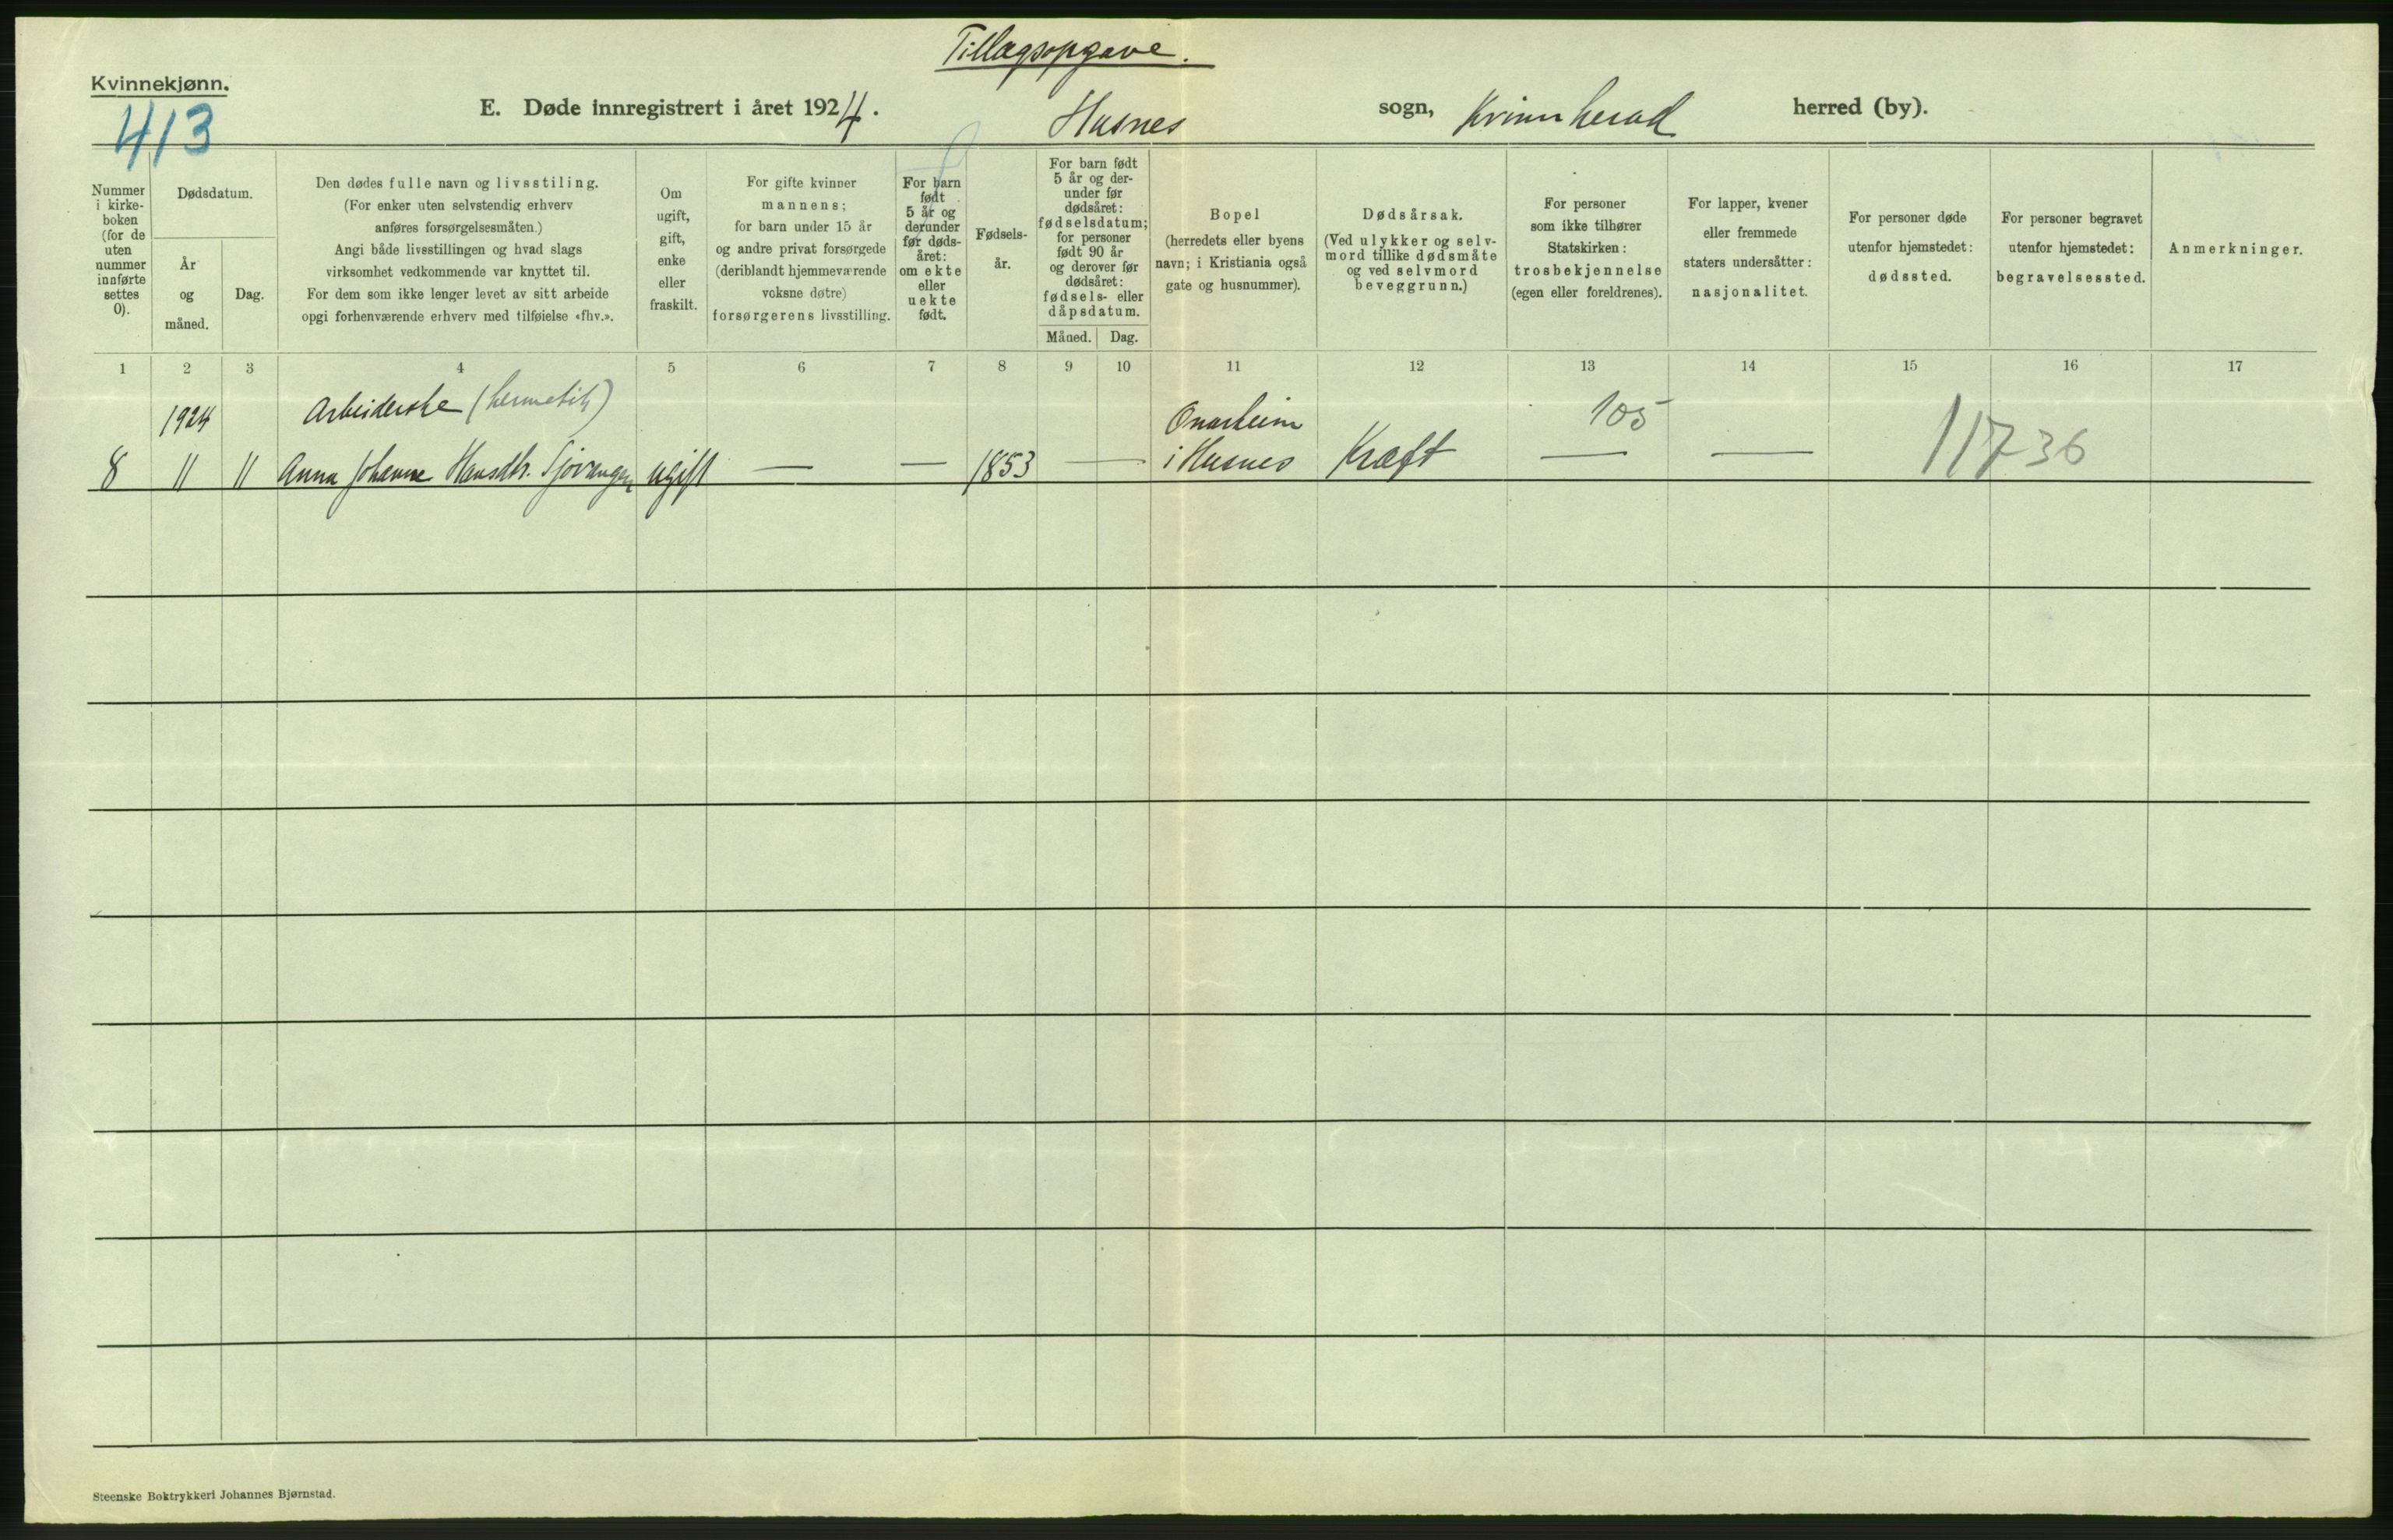 Tillægsopgave.
Kvinnekjønn.
413
E. Døde innregistrert i året 1924. Husnes sogn, Kvinnherad herred (by).
Nummer
i kirke-
boken
(for de
uten
nummer
innførte
settes
0).
Dødsdatum.
År
og
måned.
Dag.
Den dødes fulle navn og livsstiling.
(For enker uten selvstendig erhverv
anføres forsørgelsesmåten.)
Angi både livsstillingen og hvad slags
virksomhet vedkommende var knyttet til.
For dem som ikke lenger levet av sitt arbeide
opgi forhenværende erhverv med tilføielse «fhv.».
Om
ugift,
gift,
enke
eller
fraskilt.
For gifte kvinner
mannens;
for barn under 15 år
og andre privat forsørgede
(deriblandt hjemmeværende
voksne døtre)
forsørgerens livsstilling.
For barn
født
5 år og
derunder
før døds-
året:
om ekte
eller
uekte
født.
Fødsels-
år.
For barn født
5 år og der-
under før
dødsåret:
fødselsdatum;
for personer
født 90 år
og derover før
dødsåret:
fødsels- eller
dåpsdatum.
Måned.
Dag.
Bopel
(herredets eller byens
navn; i Kristiania også
gate og husnummer).
Dødsårsak.
(Ved ulykker og selv-
mord tillike dødsmåte
og ved selvmord
beveggrunn.)
For personer
som ikke tilhører
Statskirken:
trosbekjennelse
(egen eller foreldrenes).
For lapper, kvener
eller fremmede
staters undersåtter:
nasjonalitet.
For personer døde
utenfor hjemstedet:
dødssted.
For personer begravet
utenfor hjemstedet:
begravelsessted.
Anmerkninger.
1 2 3 4 5 6 7 8 9 10 11 12 13 14 15 16 17
1924 Arbeiderske (hermetik) Onarheim 105
8 11 11 Anna Johanne Hansdtr. Sjovangen ugift — — 1853 — i Husnes Kræft — — 11736
Steenske Boktrykkeri Johannes Bjørnstad.